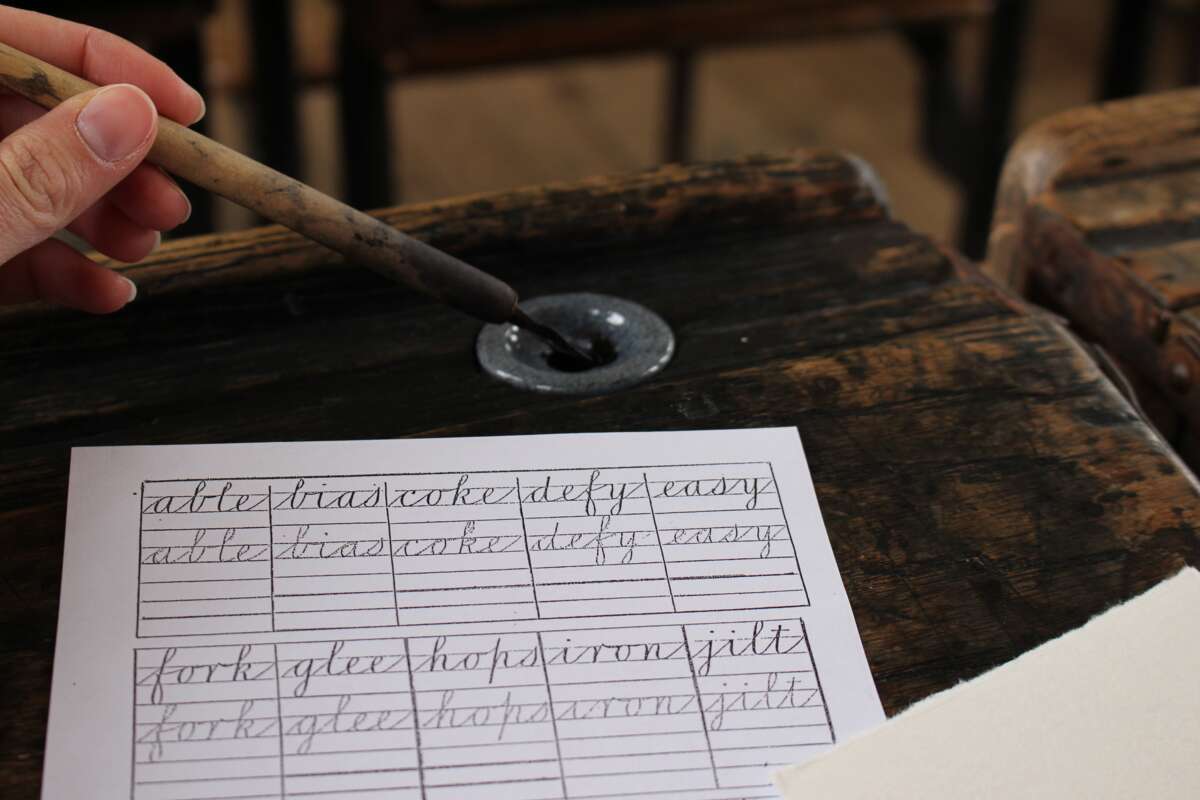 able bias coke defy easy
able bias coke defy easy
fork glee hops iron jilt
fork glee hops iron jilt